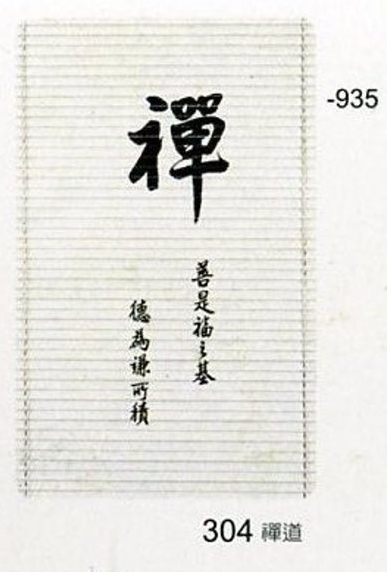 禪
善是福之基
德為謙所積
-935
304 禪道